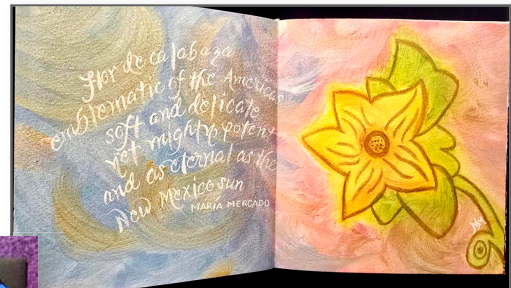 Flor de calabaza
emblematic of the Americas
soft and delicate
yet mighty potent
and as eternal as the
New Mexico sun
MARIA MERCADO